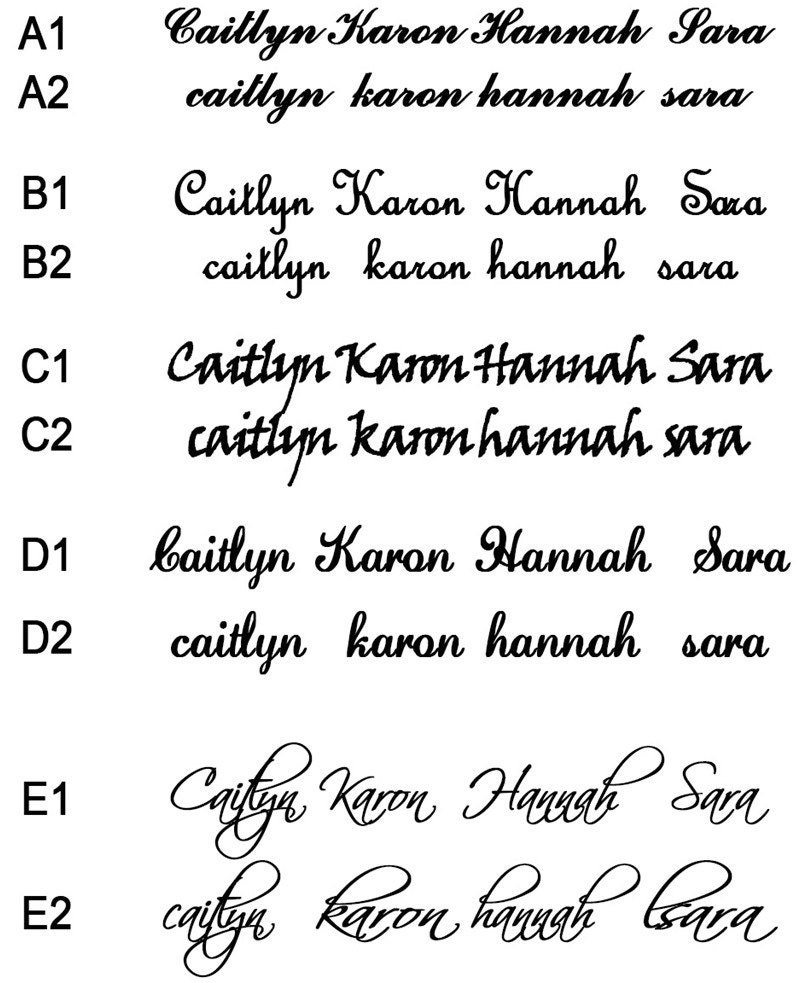 A1 Caitlyn Karon Hannah Sara
A2 caitlyn karon hannah sara
B1 Caitlyn Karon Hannah Sara
B2 caitlyn karon hannah sara
C1 Caitlyn Karon Hannah Sara
C2 caitlyn karon hannah sara
D1 Caitlyn Karon Hannah Sara
D2 caitlyn karon hannah sara
E1 Caitlyn Karon Hannah Sara
E2 caitlyn karon hannah lsara